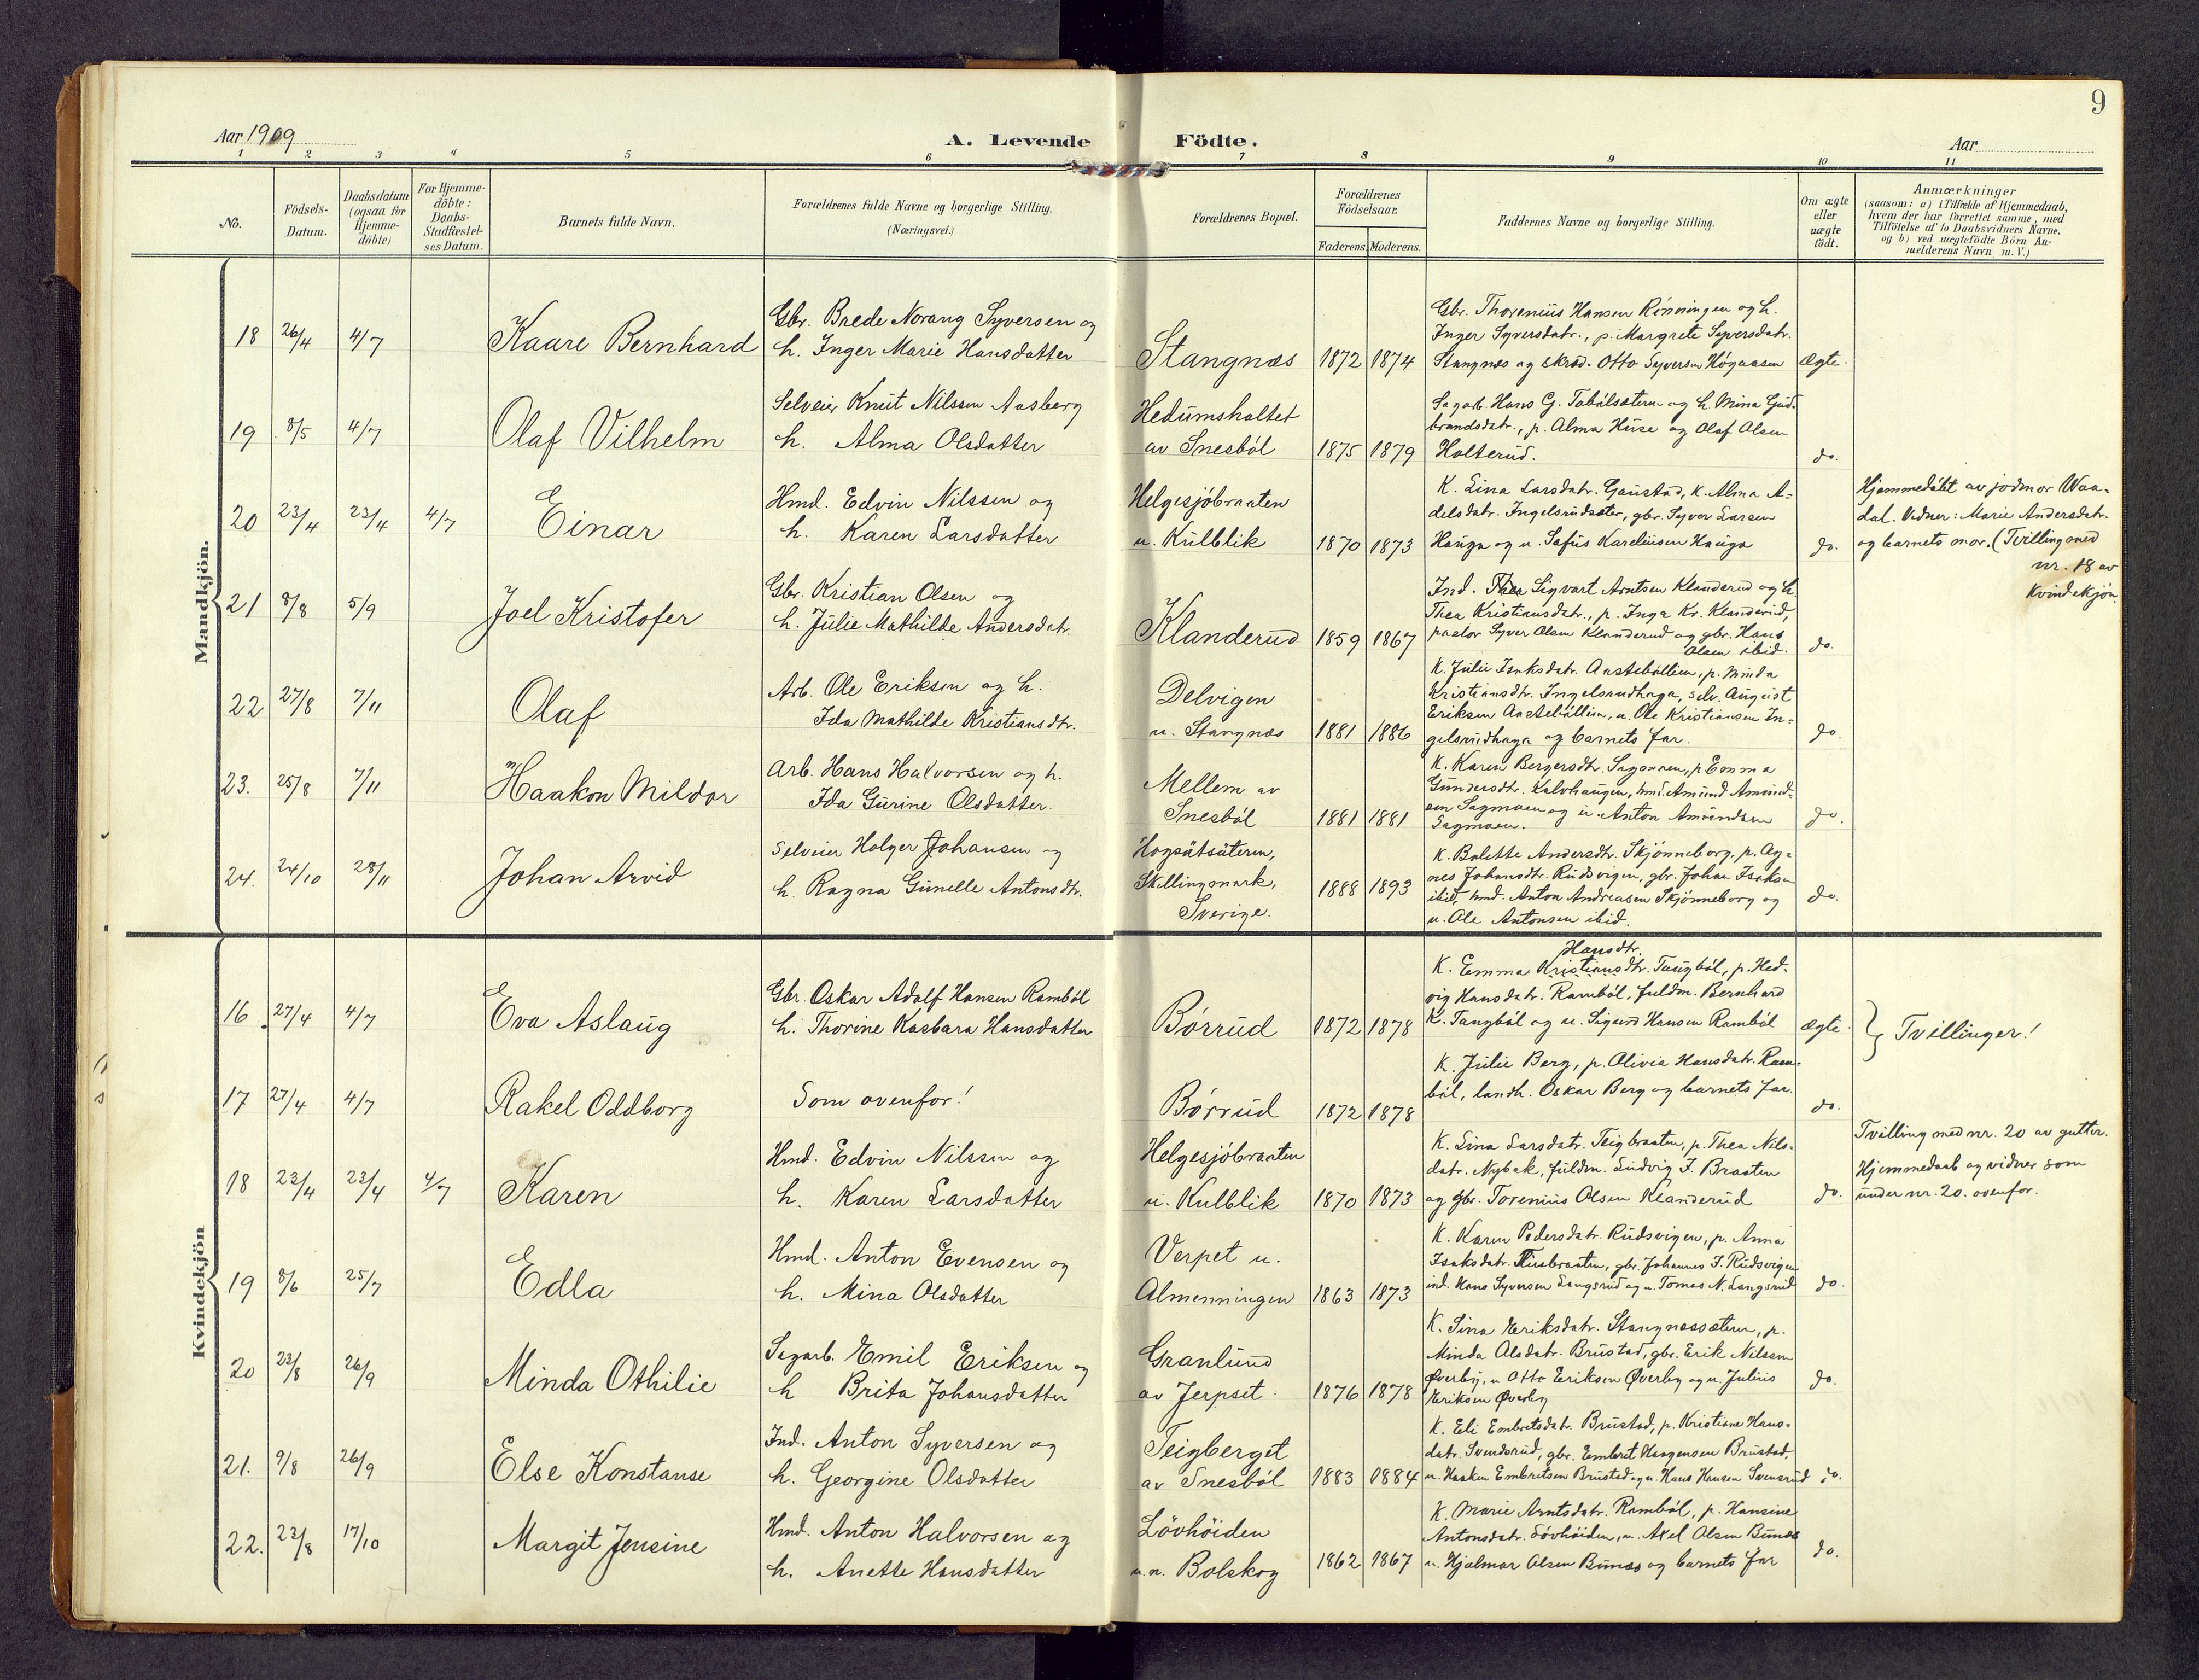 9
Aar 1909
A. Levende Födte.
Aar
1 2 3 4 5 6 7 8 9 10 11
No.
Födsels-
Datum.
Daabsdatum
(ogsaa for
Hjemme-
döbte)
For Hjemme-
döbte:
Daabs-
Stadfæstel-
ses Datum.
Barnets fulde Navn.
Forældrenes fulde Navne og borgerlige Stilling.
(Næringsvei.)
Forældrenes Bopæl.
Forældrenes
Födselsaar.
Faderens. Moderens.
Faddernes Navne og borgerlige Stilling.
Om ægte
eller
uægte
födt.
Anmærkninger
(saasom: a) i Tilfælde af Hjemmedaab,
hvem der har forrettet samme, med
Tilföielse af to Daabsvidners Navne.
og b) ved uægtefödte Börn An-
melderens Navn m. V.)
Mandkjön.
18 26/4 4/7 Kaare Bernhard
Gbr. Brede Norang Syversen og
h. Inger Marie Hansdatter
Stangnæs 1872 1874
Gbr. Thorenius Hansen Rönningen og h.
Inger Syversdatr., p. Margrete Syversdatr.
Stangnæs og skræd. Otto Syversen Högaasen
Ægte.
19 8/5 4/7 Olaf Vilhelm
Selveier Knut Nilssen Aasberg
h. Alma Olsdatter
Hedumshaltet
av Snesböl 1875 1879
Sagarb. Hans G. Tabölsæteren og h. Mina Gud-
brandsdatr., p. Alma Huse og Olaf Olsen
Holterud.
do.
20 23/4 23/4 4/7 Einar
Hmd. Edvin Nilssen og
h. Karen Larsdatter
Helgesjöbraaten
u. Kulblik 1870 1873
K. Lina Larsdatr. Gaustad, K. Alma A-
delsdatr. Ingelsrudsæter, gbr. Syver Larsen
Hauga og u. Sofus Kareliusen Hauga
do.
Hjemmedöbt av jodmor Waa-
dal. Vidner: Marie Andersdatr.
og barnets mor. (Tvilling med
nr. 18 av
Kvindekjön.
21 8/8 5/9 Joel Kristofer
Gbr. Kristian Olsen og
h. Julie Mathilde Andersdatr.
Klanderud 1859 1867
Ind. Sigvart Arntsen Klanderud og h.
Thea Kristiansdatr., p. Inga Kr. Klanderud,
pastor Syver Olsen Klanderud og gbr. Hans
Olsen ibid.
do.
22 27/8 7/11 Olaf
Arb. Ole Eriksen og h.
Ida Mathilde Kristiansdtr.
Delvigen
u. Stangnæs 1881 1886
K. Julie Isaksdatr. Aasteböllien, p. Minda
Kristiansdtr. Ingelsrudhaga, selv. August
Eriksen Aasteböllien, u. Ole Kristiansen In-
gelsrudhaga og barnets far.
do.
23. 25/8 7/11 Haakon Mildor
Arb. Hans Halvorsen og h.
Ida Gurine Olsdatter.
Mellem av
Snesböl 1881 1881
K. Karen Bergersdtr. Sagmoen, p. Emma
Gundersdtr. Kalvhaugen, hmd. Amund Amund-
sen Sagmoen og u. Anton Amundsen
Sagmoen.
do.
24. 24/10 28/11 Johan Arvid
Selveier Holger Johansen og
h. Ragna Gunelle Antonsdtr.
Hogsätsäteren,
Skillingmark, 1888 1893
Sverige.
K. Bolette Andersdtr. Skjönneborg, p. Ag-
nes Johansdtr. Rudsvigen, gbr. Johan Isaksen
ibid, hmd. Anton Andreasen Skjönneborg og
u. Ole Antonsen ibid.
do.
Kvindekjön
16. 27/4 4/7 Eva Aslaug
Gbr. Oskar Adolf Hansen Ramböl
h. Thorine Kasbara Hansdatter
Börrud 1872 1878
Hansdtr.
K. Emma Kristiansdtr. Taugböl, p. Hed-
vig Hansdatr. Ramböl, fuldm. Bernhard
K. Taugböl og u. Sigurd Hansen Ramböl
ægte.
Tvillinger!
17 27/4 4/7 Rakel Oddborg
Som ovenfor!
Börrud 1872 1878
K. Julie Berg, p. Olivia Hansdatr. Ram-
böl, landh. Oskar Berg og barnets far.
do.
18 23/4 23/4 4/7 Karen
Hmd. Edvin Nilssen og
h. Karen Larsdatter
Helgesjöbraaten
u. Kulblik 1870 1873
K. Lina Larsdatr. Teigbraaten, p. Thea Nils-
datr. Nybak, fuldm. Ludvig J. Braaten
og gbr. Torenius Olsen Klanderud
do.
Tvilling med nr. 20 av gutter.
Hjemmedaab og vidner som
under nr. 20. ovenfor.
19 8/6 25/7 Edla
Hmd. Anton Evensen og
h. Mina Olsdatter
Verpet u.
Almenningen 1863 1873
K. Karen Pedersdatr. Rudsvigen, p. Anna
Isaksdatr. gbr. Johannes J. Rudsvigen
ind. Hans Syversen Langsrud og u. Tomas N. Langsrud
do.
20 23/8 26/9 Minda Othilie
Sagarb. Emil Eriksen og
h Brita Johansdatter
Granlund
av Jerpset. 1876 1878
K. Sina Eriksdatr. Stangnæssæteren, p.
Minda Olsdatr. Brustad, gbr. Erik Nilssen
Øverby, u Otto Eriksen Øverby og u. Julius
Eriksen Øverby
do.
21. 9/8 26/9 Else Konstanse
Ind. Anton Syversen og
h. Georgine Olsdatter
Teigberget
av Snesböl 1883 1884
K. Eli Embretsdatr. Brustad, p. Kristiane Hans-
datr. Svensrud, gbr. Embret Haagensen Brustad,
u. Haaken Embretsen Brustad og u. Hans Hansen Svensrud
do.
22. 23/8 17/10 Margit Jensine
Hmd. Anton Halvorsen og
h. Anette Hansdatter
Lövhöiden
u.n. Bolskog 1862 1867
K. Marie Arntsdatr. Ramböl, p. Hansine
Antonsdatr. Lövhöiden, u. Axel Olsen Bunæs
u. Hjalmar Olsen Bunæs og barnets far
do.